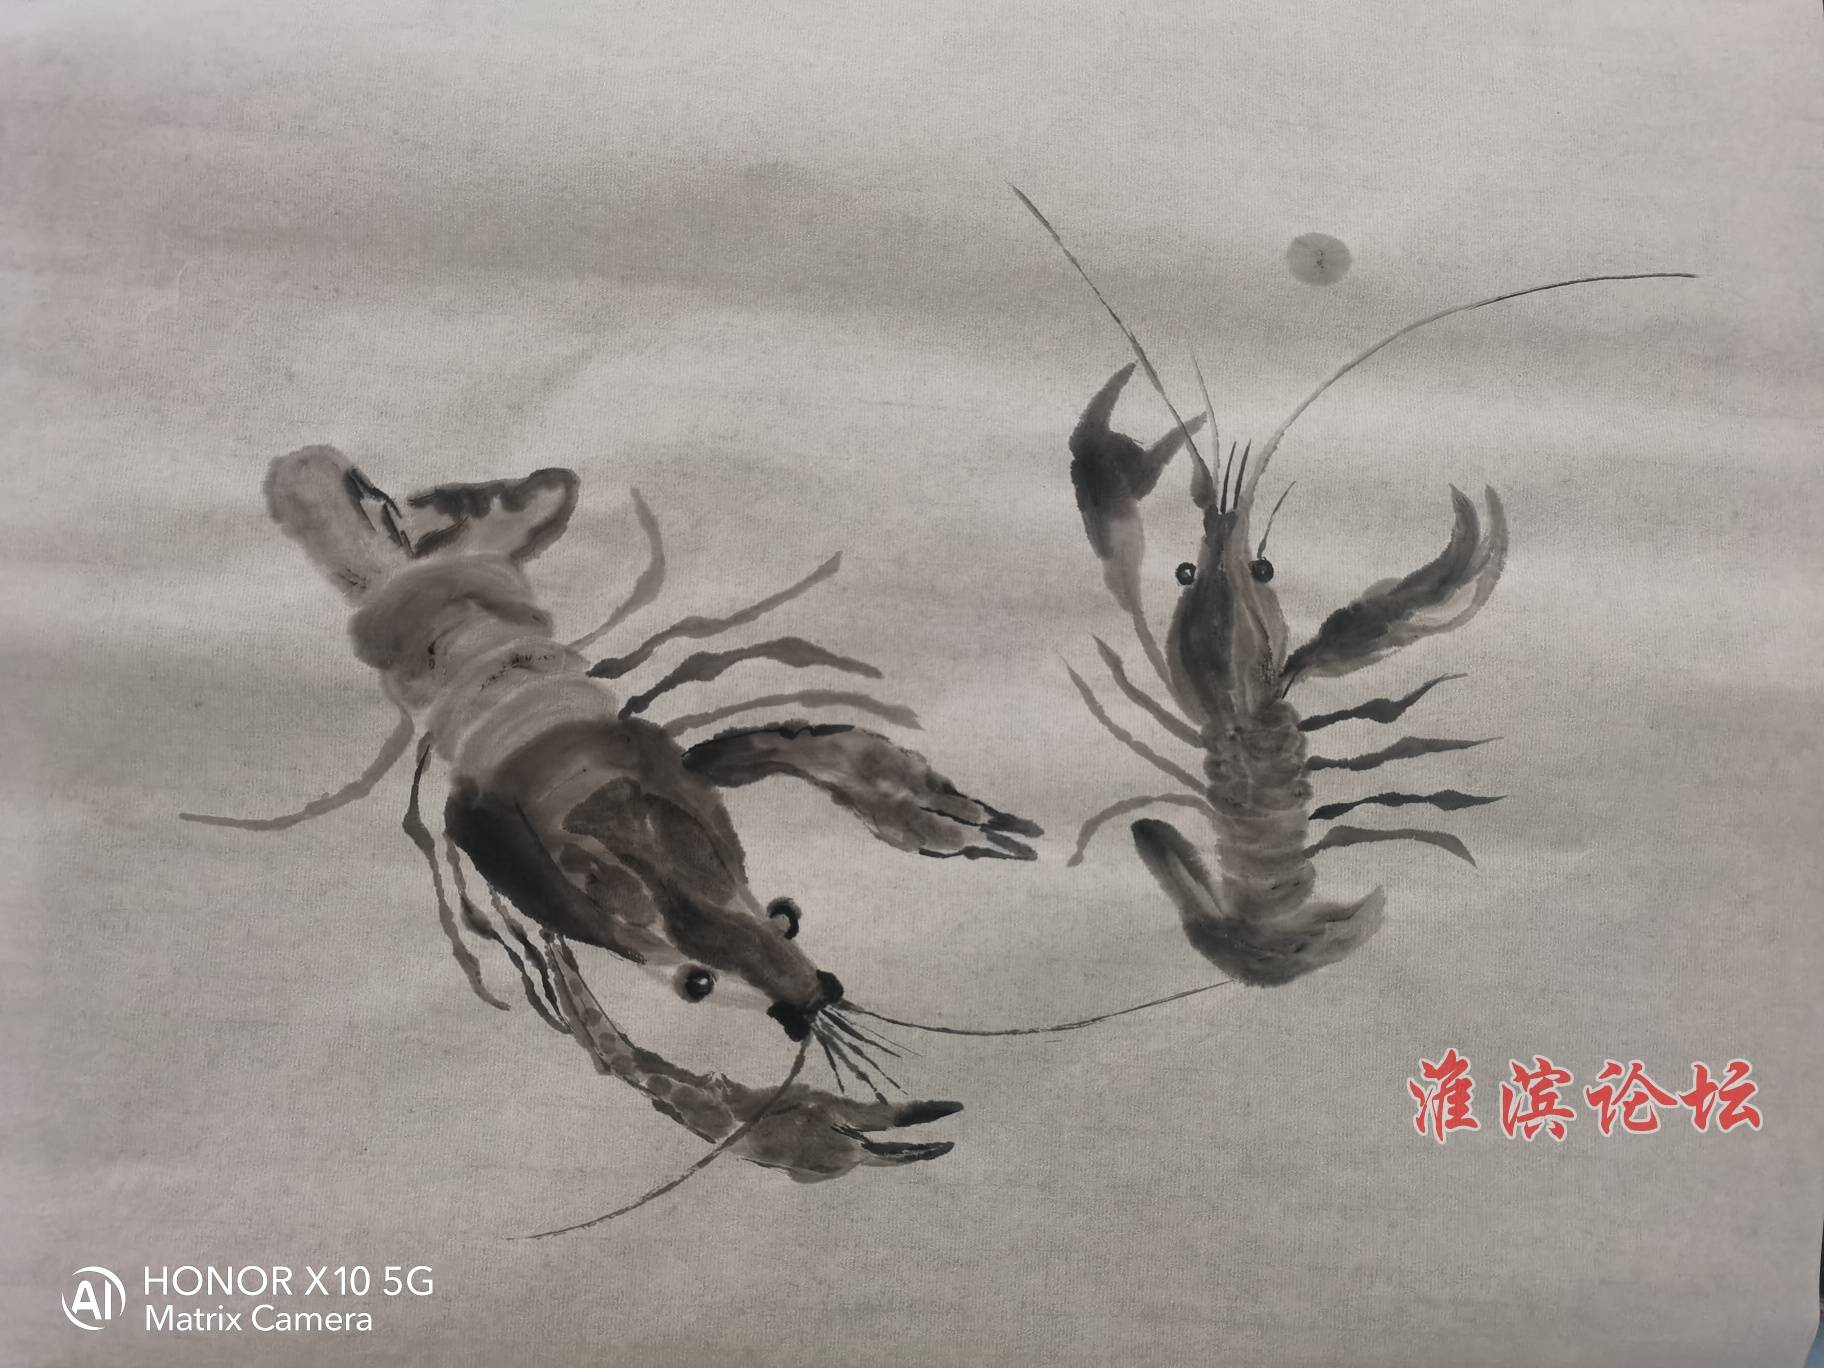 淮滨论坛
AI HONOR X10 5G
Matrix Camera